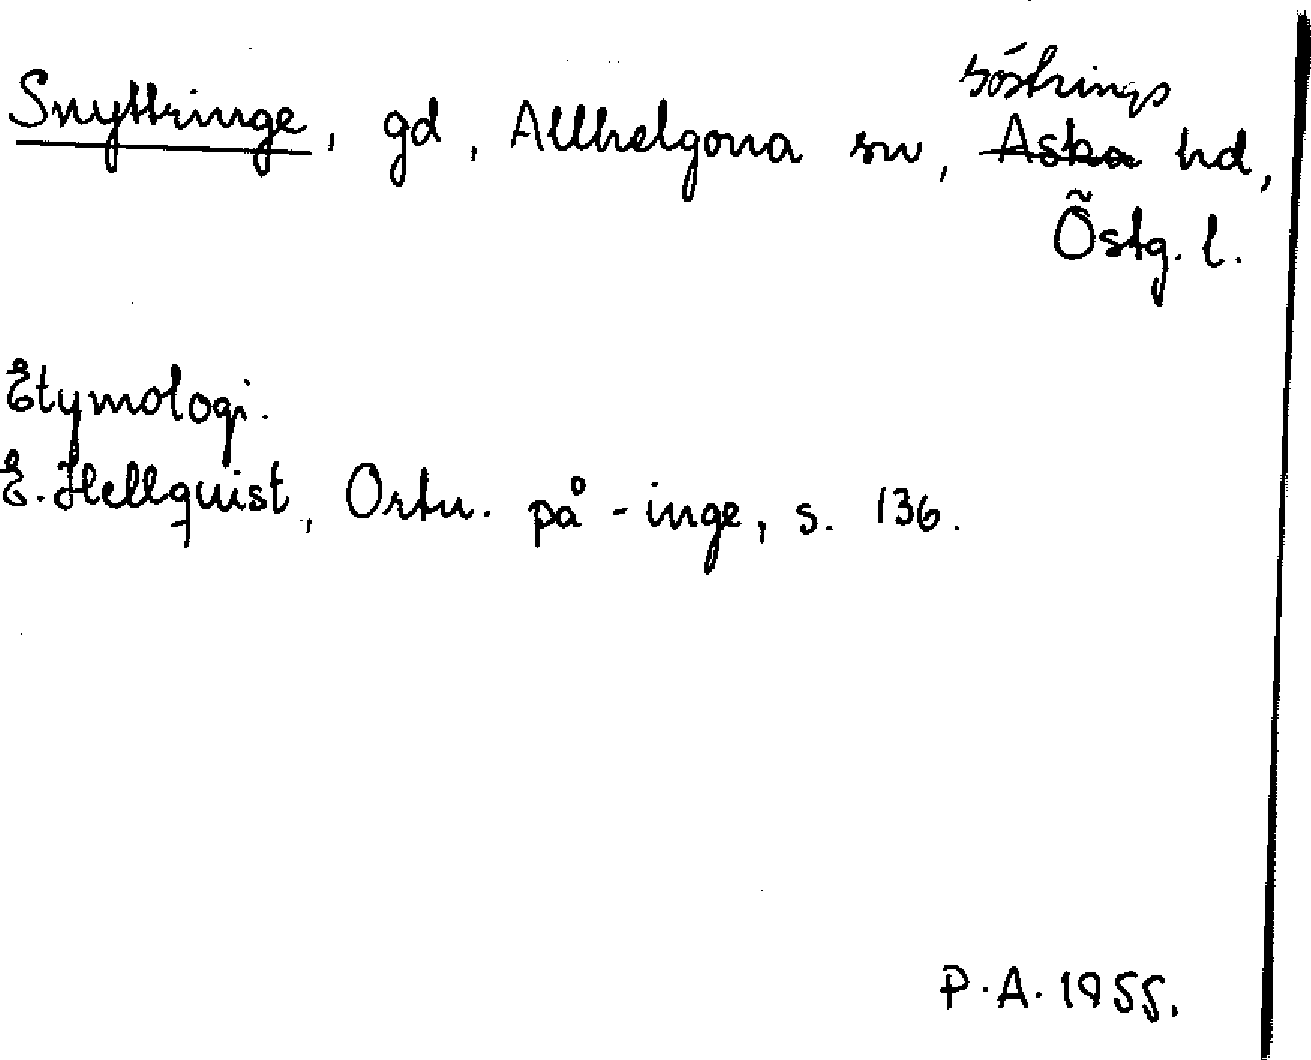 Göstrings
Snyttringe, gd, Allhelgona sn, Aska hd,
Östg. l.
Etymologi.
E. Hellquist, Ortn. på -inge, s. 136.
P.A. 1955.